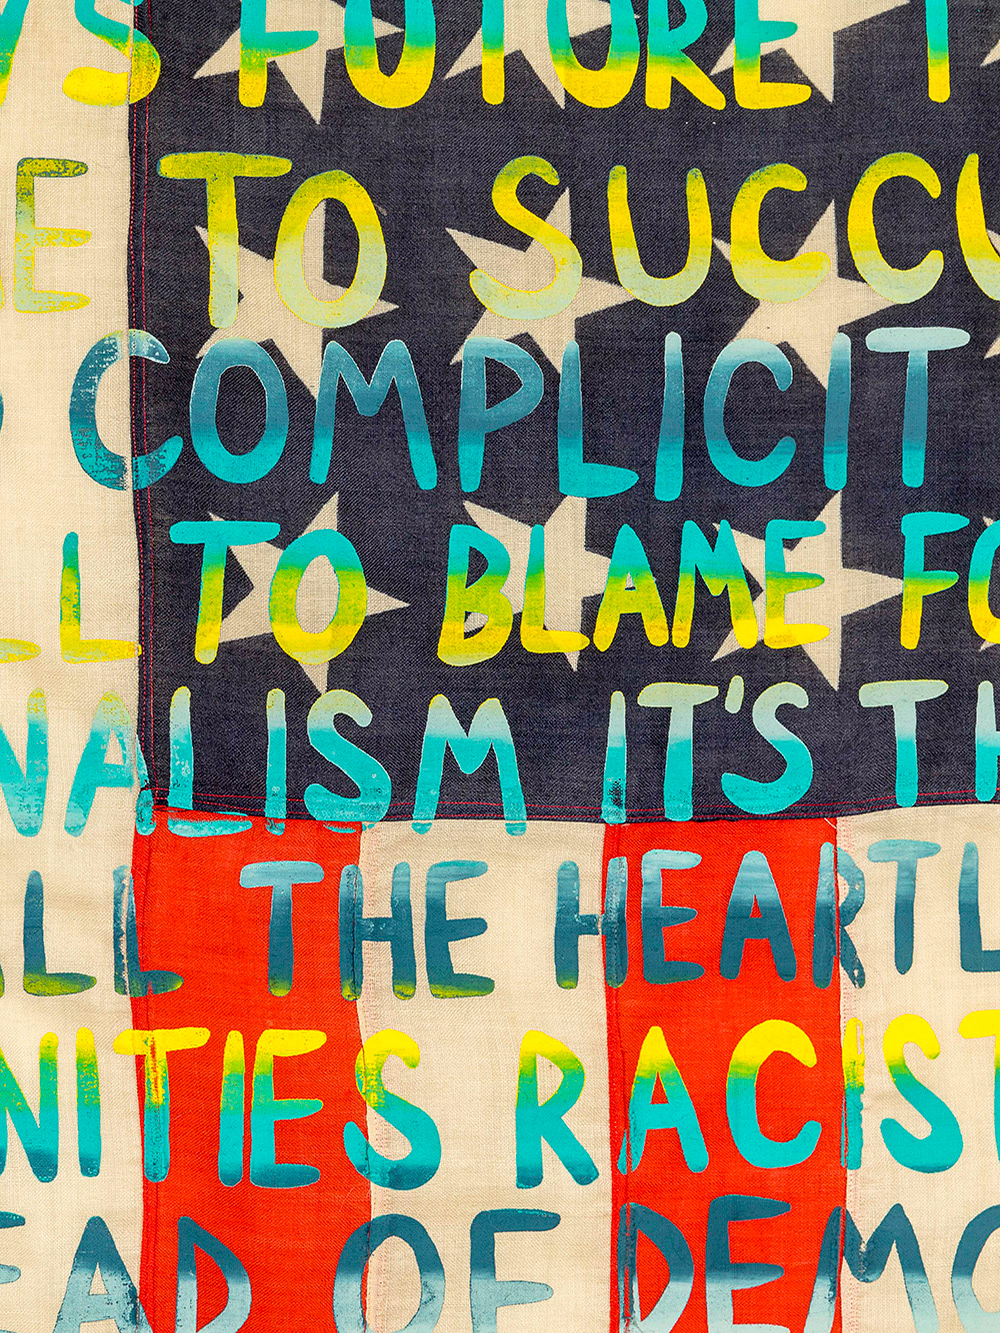 S FUTURE T
E TO SUCCU
COMPLICIT
LL TO BLAME FO
NALISM IT'S TH
ALL THE HEARTL
NITIES RACIST
EAD OF DEMO